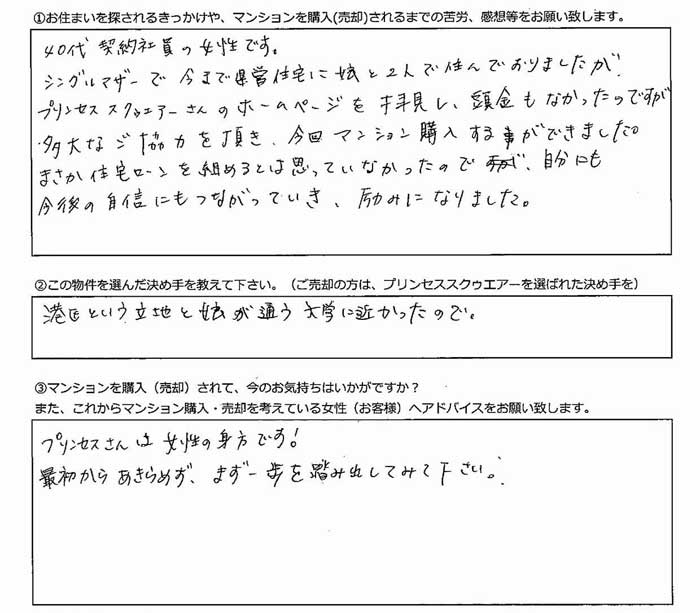 ①お住まいを探されるきっかけや、マンションを購入(売却)されるまでの苦労、感想等をお願い致します。
40代 契約社員の女性です。
シングルマザーで今まで県営住宅に娘と2人で住んでおりましたが、
プリンセススクゥエアーさんのホームページを拝見し、頭金もなかったのですが
多大なご協力を頂き、今回マンション購入する事ができました。
まさか住宅ローンを組めるとは思っていなかったのですが、自分にも
今後の自信にもつながっていき、励みになりました。
②この物件を選んだ決め手を教えて下さい。（ご売却の方は、プリンセススクゥエアーを選ばれた決め手を）
港区という立地と娘が通う大学に近かったので。
③マンションを購入（売却）されて、今のお気持ちはいかがですか？
また、これからマンション購入・売却を考えている女性（お客様）へアドバイスをお願い致します。
プリンセスさんは女性の身方です！
最初からあきらめず、まず一歩を踏み出してみて下さい。